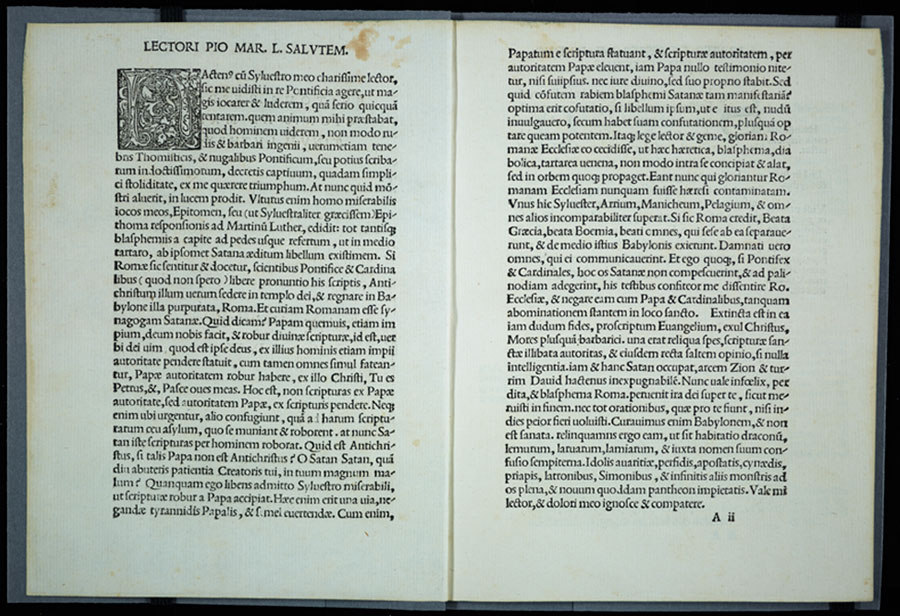 LECTORI PIO MAR. L. SALVTEM.
HActenꝰ cũ Syluestro meo charissime lector,
sic me uidisti in re Pontificia agere, ut ma⸗
gis iocarer & luderem, quã serio quicquã
tentarem. quem animum mihi præstabat,
quod hominem uiderem, non modo ru⸗
dis & barbari ingenii, uerumetiam tene⸗
bris Thomisticis, & nugalibus Pontificum, seu potius scriba⸗
rum indoctissimorum, decretis captiuum, quadam simplici
ci stoliditate, ex me quærere triumphum. At nunc quid mõ⸗
stri aluerit, in lucem prodit. Vltutus enim homo miserabilis
iocos meos, Epitomen, seu (ut Syluestraliter græcissem) Epi⸗
thoma responsionis ad Martinũ Luther, edidit: tot tantisq;
blasphemiis a capite ad pedes usque refertum, ut in medio
tartaro, ab ipsomet Satana æditum libellum existimem. Si
Romæ sic sentitur & docetur, scientibus Pontifice & Cardina
libus (quod non spero) libere pronuntio his scriptis, Anti⸗
christum illum uerum sedere in templo dei, & regnare in Ba⸗
bylone illa purputata, Roma. Et curiam Romanam esse sy⸗
nagogam Satanæ. Quid dicam? Papam quemuis, etiam im
pium, deum nobis facit, & robur diuinæ scripturæ, id est, uer
bi dei uim quod est ipse deus, ex illius hominis etiam impii
autoritate pendere statuit, cum tamen omnes simul fatean⸗
tur, Papæ autoritatem robur habere, ex illo Christi, Tu es
Petrus, &, Pasce oues meas. Hoc est, non scripturas ex Papæ
autoritate, sed autoritatem Papæ, ex scripturis pendere. Neq;
enim ubi urgentur, alio confugiunt, quã ad harum scriptu⸗
ratum ceu asylum, quo se muniant & roborent. at nunc Sa⸗
tan iste scripturas per hominem roborat. Quid est Antichri⸗
stus, si talis Papa non est Antichristus? O Satan Satan, quã
diu abuteris patientia Creatoris tui, in tuum magnum ma⸗
lum? Quanquam ego libens admitto Syluestro miserabili,
ut scripturæ robur a Papa accipiat. Hæc enim erit una uia, ne⸗
gandæ tyrannidis Papalis, & semel euertendæ. Cum enim,
Papatum e scriptura statuant, & scripturæ autoritatem, per
autoritatem Papæ eleuent, iam Papa nullo testimonio nite⸗
tur, nisi suiipsius. nec iure diuino, sed suo proprio stabit. Sed
quid cõfutem rabiem blasphemi Satanæ tam manifestariã?
optima erit cõfutatio, si libellum ipsum, ut editus est, nudũ
inuulgauero, secum habet suam confutationem, plusquã op
tare queam potentem. Itaq; lege lector & geme, gloriam Ro⸗
manæ Ecclesiæ eo cecidisse, ut hæc hæretica, blasphema, dia
bolica, tartarea uenena, non modo intra se concipiat & alat,
sed in orbem quoq; propaget. Eant nunc qui gloriantur Ro⸗
manam Ecclesiam nunquam fuisse hæresi contaminatam.
Vnus hic Syluester, Arrium, Manicheum, Pelagium, & om⸗
nes alios incomparabiliter superat. Si sic Roma credit, Beata
Græcia, beata Boemia, beati omnes, qui sese ab ea separaue⸗
runt, & de medio istius Babylonis exierunt. Damnati uero
omnes, qui ei communicauerint. Et ego quoq;, si Pontifex
& Cardinales, hoc os Satanæ non compescuerint, & ad pali⸗
nodiam adegerint, his testibus confiteor me dissentire Ro.
Ecclesiæ, & negare eam cum Papa & Cardinalibus, tanquam
abominationem stantem in loco sancto. Extincta est in ea
iam dudum fides, proscriptum Euangelium, exul Christus,
Mores plusquã barbarici. una erat reliqua spes, scripturæ san⸗
ctæ illibata autoritas, & eiusdem recta saltem opinio, si nulla
intelligentia. iam & hanc Satan occupat, arcem Zion & tur⸗
rim Dauid hactenus inexpugnabilẽ. Nunc uale infœlix, per
dita, & blasphema Roma. peruenit ira dei super te, sicut me⸗
ruisti in finem. nec tot orationibus, quæ pro te fiunt, nisi in⸗
dies peior fieri uoluisti. Curauimus enim Babylonem, & non
est sanata. relinquamns ergo eam, ut sit habitatio draconũ,
lemurum, laruarum, lamiarum, & iuxta nomen suum con⸗
fusio sempiterna. Idolis auaritiæ, perfidis, apostatis, cynædis,
priapis, latronibus, Simonibus, & infinitis aliis monstris ad
os plena, & nouum quoddam pantheon impietatis. Vale mi
lector, & dolori meo ignosce & compatere.
A ii